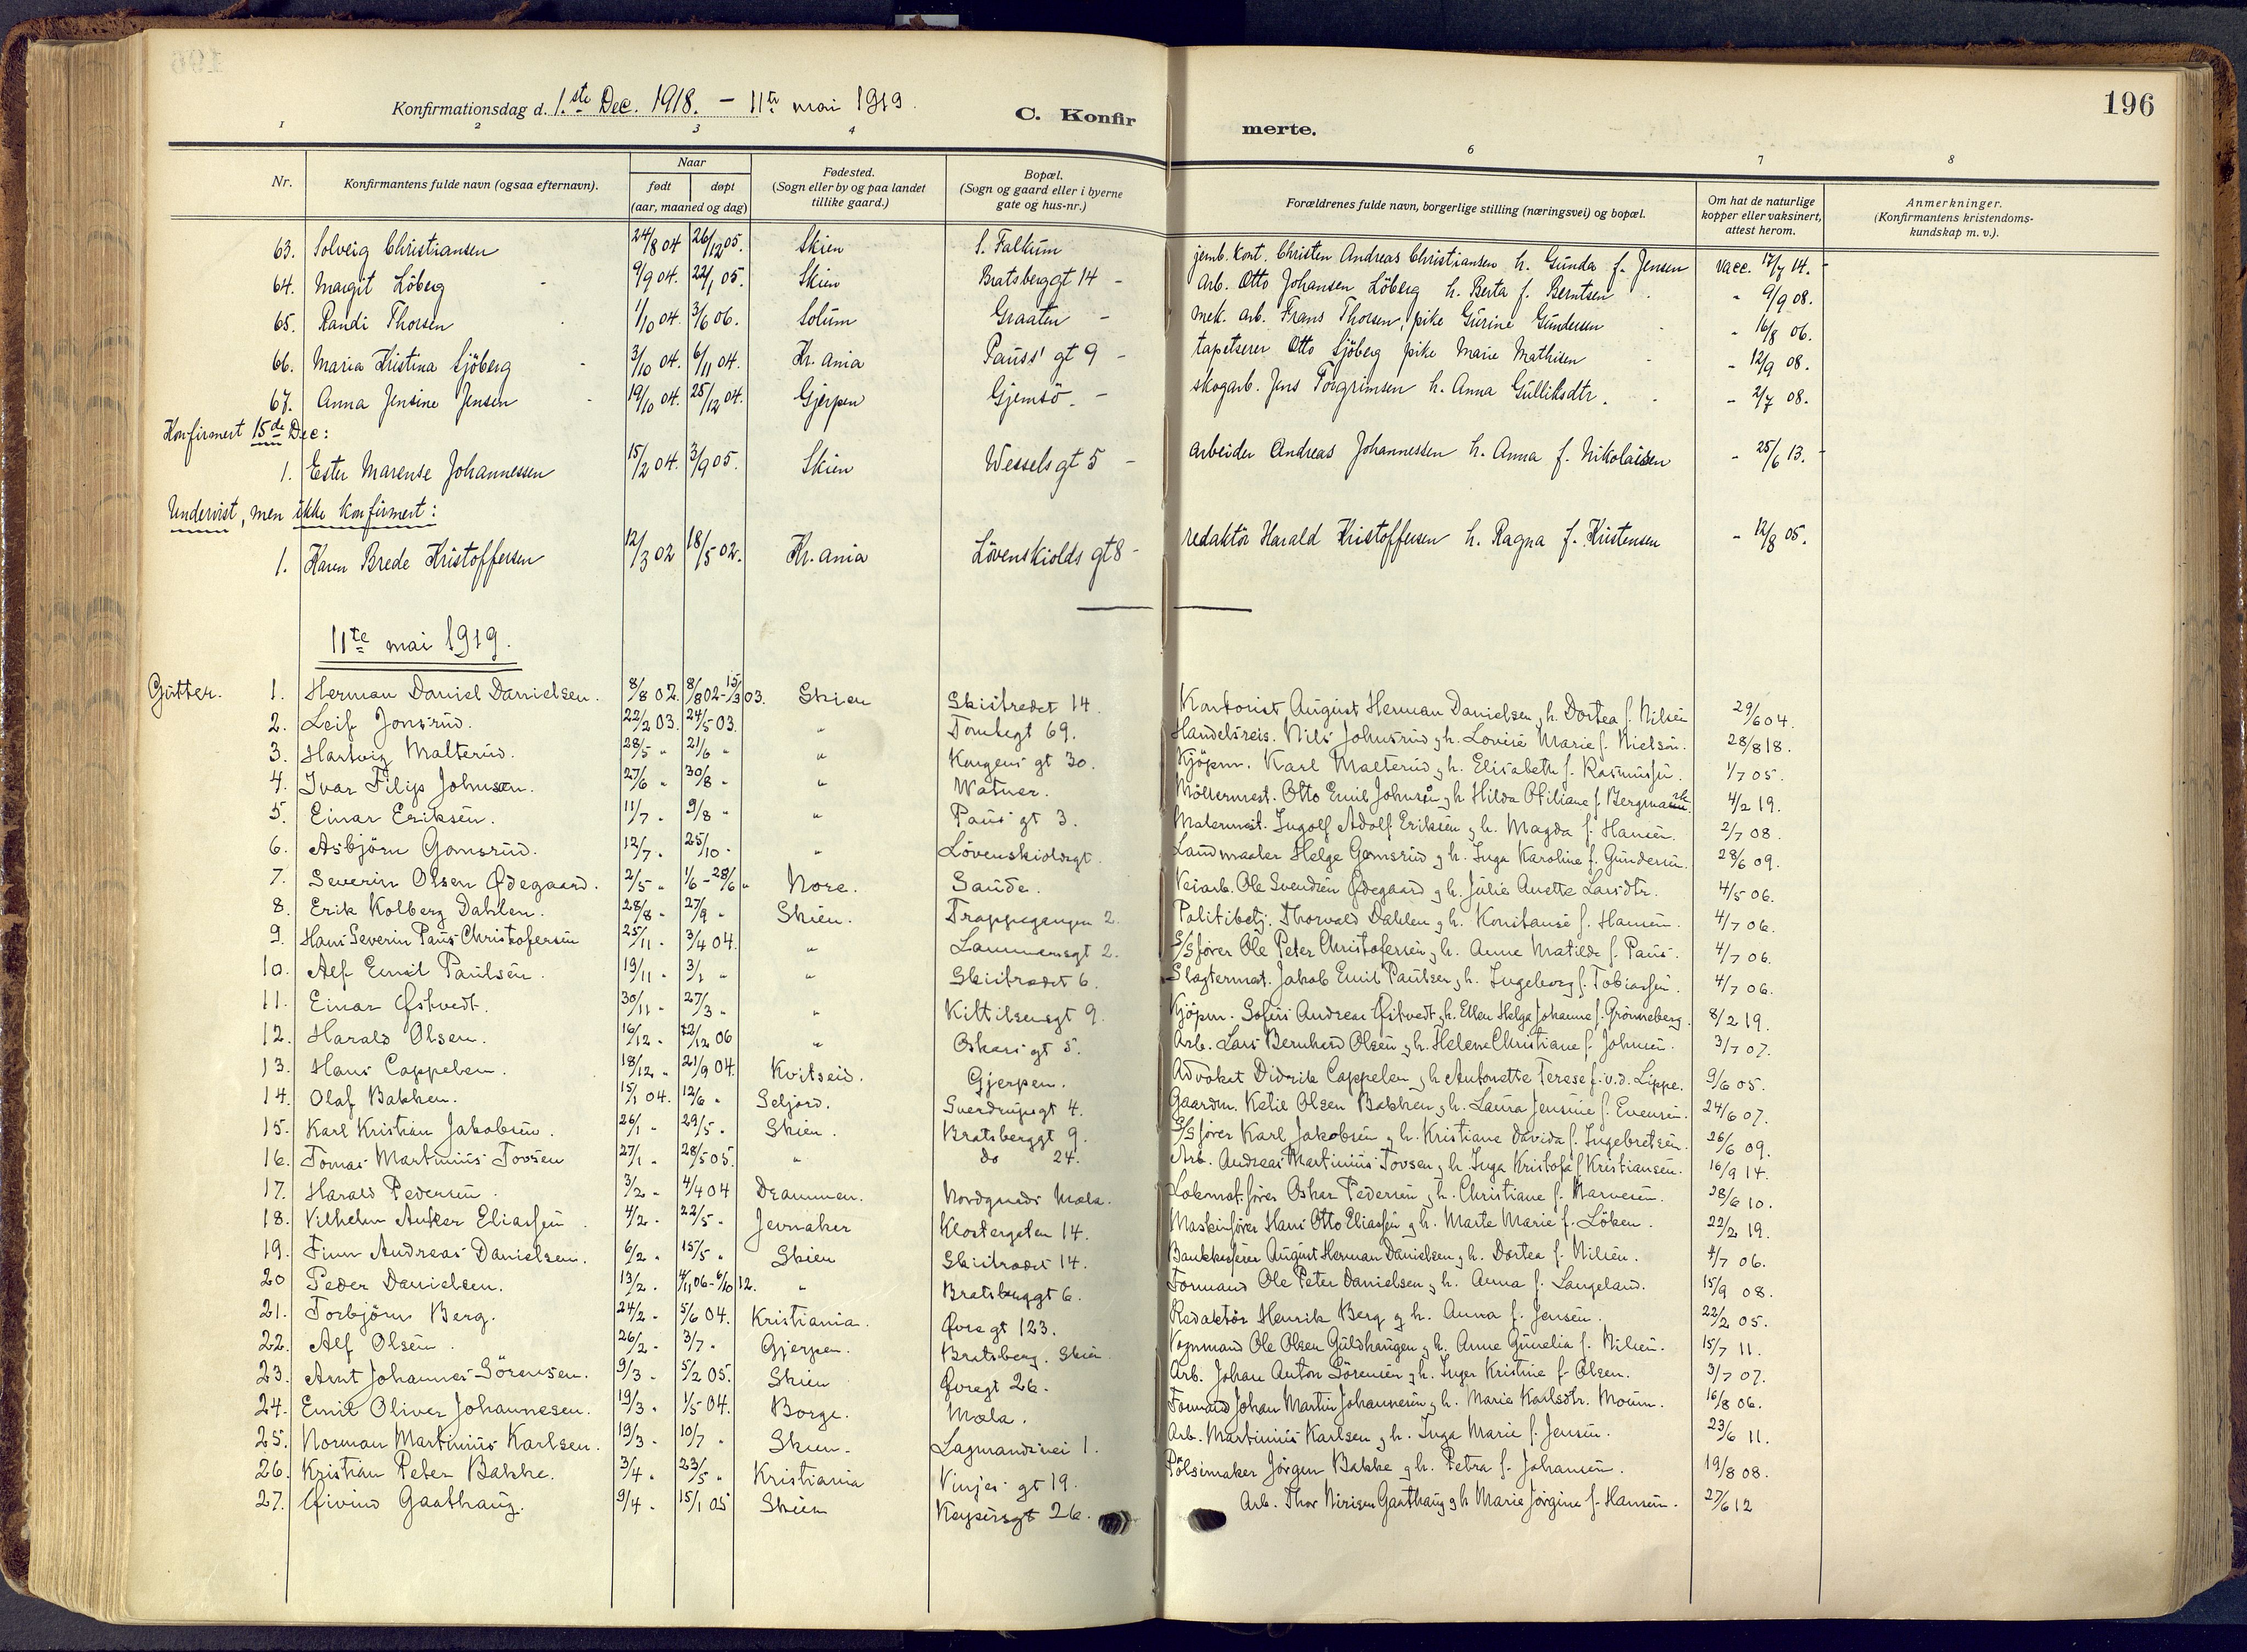 196
Konfirmationsdag d. 1.ste Dec. 1918. – 11te mai 1919.
C. Konfirmerte.
1 2 3 4 6 7 8
Nr. Konfirmantens fulde navn (ogsaa efternavn). Naar født døpt (aar, maaned og dag) Fødested. (Sogn eller by og paa landet tillike gaard.) Bopæl. (Sogn og gaard eller i byerne gate og hus-nr.) Forældrenes fulde navn, borgerlige stilling (næringsvei) og bopæl. Om hat de naturlige kopper eller vaksinert, attest herom. Anmerkninger. (Konfirmantens kristendomskundskap m. v.).
63. Solveig Christiansen 24/8 04 26/12 05. Skien S. Falkum jernb. kont. Christen Andreas Christiansen h. Gunda f. Jensen vacc. 17/7 14.
64. Margit Löberg 9/9 04. 22/1 05. Skien Bratsberggt 14 - Arb. Otto Johansen Löberg h. Berta f. Berntsen " 9/9 08.
65. Randi Thorsen 1/10 04. 3/6 06. Solum Graaten - mek. arb. Frans Thorsen, pike Gurine Gundersen " 16/8 06.
66. Maria Kristina Sjöberg 3/10 04. 6/11 04. Kr.ania Pauss' gt 9 - tapetserer Otto Sjöberg pike Marie Mathisen " 12/9 08.
67. Anna Jensine Jensen 19/10 04. 25/12 04. Gjerpen Gjemsö - skogarb. Jens Torgrimsen h. Anna Gulliksdtr. " 2/7 08.
Konfirmert 15de Dec:
1. Ester Marense Johannessen 15/2 04. 3/9 05. Skien Wessels gt 5 - arbeider Andreas Johannessen h. Anna f. Nikolaisen " 25/6 13.
Undervist, men ikke konfirmert:
1. Karen Brede Kristoffersen 12/3 02 18/5 02. Kr.ania Lövenskiolds gt 8 - redaktör Harald Kristoffersen h. Ragna f. Kristensen " 12/8 05.
11te mai 1919.
Gutter. 1. Herman Daniel Danielsen. 8/8 02. 8/8 02 - 15/3 03. Skien Skistredet 14. Kontorist August Herman Danielsen g h. Dortea f. Nilsen 29/6 04.
2. Leif Jonsrud. 22/2 03. 24/5 03. " Tomtegt 69. Handelsreis. Nils Johnsrud g h. Lovise Marie f. Nielsen. 28/8 18.
3. Hartvig Malterud. 28/5 " 21/6 " " Kongens gt 30. Kjöpm. Karl Malterud g h. Elisabeth f. Rasmussen. 1/7 05.
4. Ivar Filip Johnsen. 27/6 " 30/8 " " Watner. Möllermest. Otto Emil Johnsen g h Hilda Otiliane f. Bergman. 4/2 19.
5. Einar Eriksen. 11/7 " 9/8 " " Paus' gt 3. Malermest. Ingolf Adolf Eriksen g h. Magda f. Hansen. 2/7 08.
6. Asbjörn Gomsrud. 12/7 " 25/10 " " Lövenskioldsgt. Landmaaler Helge Gomsrud g h. Inga Karoline f. Gundersen. 28/6 09.
7. Severin Olsen Ødegaard. 2/5 " 1/6 - 28/6 " Nore. Saude. Veiarb. Ole Svendsen Ødegaard g h. Julie Anette Larsdtr. 4/5 06.
8. Erik Kolberg Dahlen. 28/8 " 27/9 " Skien. Trappegangen 2. Politibetj. Thorvald Dahlen g h. Konstanse f. Hansen. 4/7 06.
9. Hans Severin Paus Christofersen 25/11 " 3/4 04. " Lammersgt 2. S/S förer Ole Peter Christofersen g h. Anne Matilde f. Paus. 4/7 06.
10. Alf Emil Paulsen. 19/11 " 3/1 " " Skistredet 6. Slagtermst. Jakob Emil Paulsen g h. Ingeborg f. Tobiassen. 4/7 06.
11. Einar Østvedt. 30/11 " 27/3 " " Kittilsensgt 9. Kjöpm. Sofus Andreas Østvedt g h. Ellen Helga Johanne f. Grönneberg. 8/2 19.
12. Harald Olsen. 16/12 " 12/12 06 " Oskars gt 5. Arb. Lars Bernhard Olsen g h. Helene Christiane f. Johnsen. 3/7 07.
13. Hans Cappelen. 18/12 " 21/9 04. Kvitseid. Gjerpen. Advokat Didrik Cappelen g h Antonette Terese f. v.d. Lippe. 9/6 05.
14. Olaf Bakken. 15/1 04. 12/6 " Seljord. Sverdrupsgt 4. Gaardm. Ketil Olsen Bakken g h. Laura Jensine f. Evensen. 24/6 07.
15. Karl Kristian Jakobsen. 26/1 " 29/5 " Skien. Bratsberggt 9. S/S förer Karl Jakobsen g h. Kristiane Davida f. Ingebretsen. 26/6 09.
16. Tomas Martinius Tovsen 27/1 " 28/5 05. " do 24. Arb. Andreas Martinius Tovsen g h. Inga Kristofa f Kristiansen. 16/9 14.
17. Harald Pedersen. 3/2 " 4/4 04 Drammen. Nordgruds Mæla. Lokomot.förer Oskar Pedersen g h. Christiane f. Marvesen. 28/6 10.
18. Vilhelm Anker Eliassen. 4/2 " 22/5 " Jevnaker Klostergaten 14. Maskinförer Hans Otto Eliassen g h. Marte Marie f. Löken. 22/2 19.
19. Finn Andreas Danielsen. 6/2 " 15/5 " Skien Skistredet 14. Bankkasserer August Herman Danielsen g h. Dortea f. Nilsen. 4/7 06.
20 Peder Danielsen. 13/2 " 4/11 06 - 6/10 12. " Bratsberggt 6. Formand Ole Peter Danielsen g h. Anna f. Langeland. 15/9 08.
21. Torbjörn Berg. 24/2 " 5/6 04. Kristiania. Øvre gt 123. Redaktör Henrik Berg g h. Anna f. Jensen. 22/2 05.
22. Alf Olsen. 26/2 " 3/7 " Gjerpen. Bratsberg. Skien. Vognmand Ole Olsen Guldhaugen g h. Anne Gunelia f. Nilsen. 15/7 11.
23. Arnt Johannes Sörensen. 9/3 " 5/2 05. Skien Øvregt 26. Arb. Johan Anton Sörensen g h. Inger Kristine f. Olsen. 3/7 07.
24. Emil Oliver Johannesen. 19/3 " 1/5 04. Borge. Mæla. Formand Johan Martin Johannesen g h. Marie Karlsdtr. Moum. 16/8 06.
25. Norman Martinius Karlsen. 19/3 " 10/7 " Skien. Lagmandsvei 1. Arb. Martinius Karlsen g h. Inga Marie f. Jensen. 23/6 11.
26. Kristian Peter Bakke. 3/4 " 23/5 " Kristiania Vinjes gt 19. Pölsemaker Jörgen Bakke g h. Petra f. Johansen. 19/8 08.
27. Øivind Gaathaug. 9/4 " 15/1 05 Skien Keysersgt 26. Arb. Thor Nirisen Gaathaug g h Marie Jörgine f. Hansen. 27/6 12